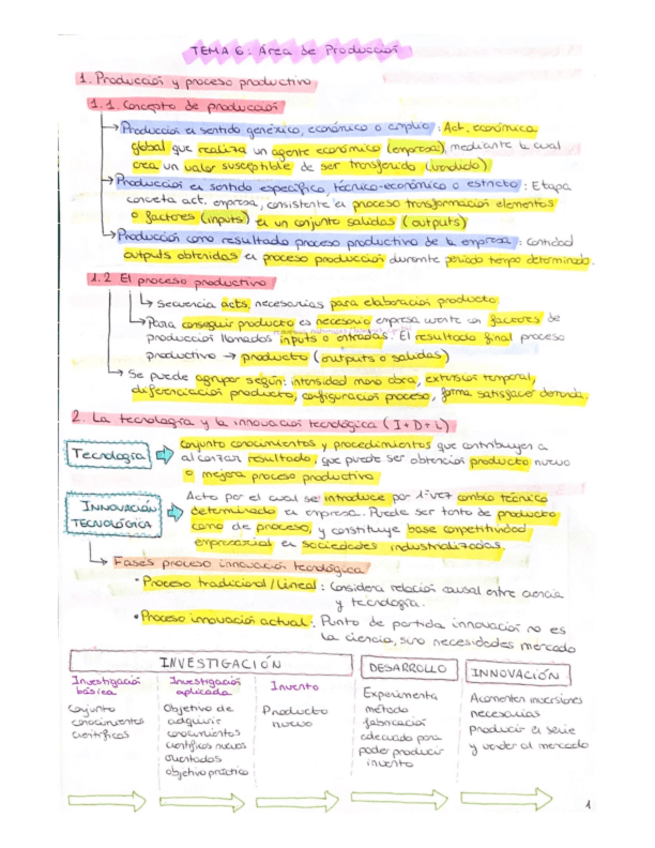 TEMA 6: Área de Producción
1. Producción y proceso productivo
1.1. Concepto de producción
Producción en sentido genérico, económico o amplio: Act. económica
global que realiza un agente económico (empresa), mediante la cual
crea un valor susceptible de ser transferido (vendido)
Producción en sentido específico, técnico-económico o estricto: Etapa
concreta act. empresa, consistente en proceso transformación elementos
o factores (inputs) en un conjunto salidas (outputs)
Producción como resultado proceso productivo de la empresa: Cantidad
outputs obtenidas en proceso producción durante periodo tempo determinado.
1.2 El proceso productivo
Secuencia acts. necesarias para elaboración producto
Para conseguir producto es necesario empresa cuente con factores de
producción llamados inputs o entradas. El resultado final proceso
productivo → producto (outputs o salidas)
Se puede agrupar según: intensidad mano obra, extensión temporal,
diferenciación producto, configuración proceso, forma satisfacer demanda.
2. La tecnología y la innovación tecnológica (I+D+i)
Tecnología
Conjunto conocimientos y procedimientos que contribuyen a
alcanzar resultado, que puede ser obtención producto nuevo
o mejora proceso productivo
INNOVACIÓN
TECNOLÓGICA
Acto por el cual se introduce por 1ª vez cambio técnico
determinado en empresa. Puede ser tanto de producto
como de proceso, y constituye base competitividad
empresarial en sociedades industrializadas.
Fases proceso innovación tecnológica
• Proceso tradicional/Lineal: Considera relación causal entre ciencia
y tecnología.
• Proceso innovación actual: Punto de partida innovación no es
la ciencia, sino necesidades mercado
INVESTIGACIÓN
DESARROLLO
INNOVACIÓN
Investigación
básica
Conjunto
conocimientos
científicos
Investigación
aplicada
Objetivo de
adquirir
conocimientos
científicos nuevos
orientados
objetivo práctico
Invento
Producto
nuevo
Experimenta
método
fabricación
adecuado para
poder producir
invento
Acometen inversiones
necesarias
producir en serie
y vender al mercado
1